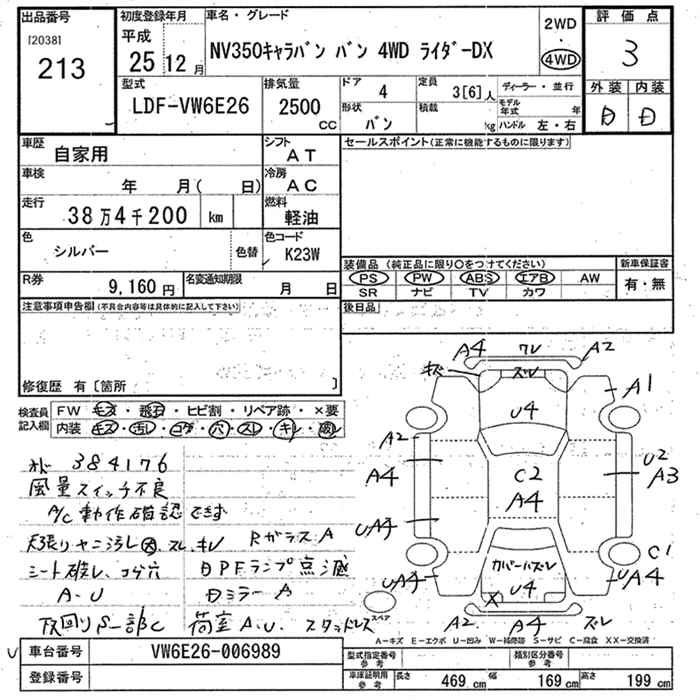 出品番号
[2038]
213
初度登録年月
平成
25 12 月
車名・グレード
NV350キャラバン バン 4WD ライダーDX
2WD
・
4WD
評価点
3
外装 内装
D D
型式
LDF-VW6E26
排気量
2500
CC
ドア 4
形状 バン
定員 3[6]人
積載 kg
ディーラー・並行
モデル年式 年
ハンドル 左・右
車歴
自家用
シフト
AT
車検
年 月( 日)
冷房
AC
走行
38万4千200 km
燃料
軽油
色
シルバー
色替
色コード
K23W
R券
9,160円
名変通知期限
月 日
セールスポイント(正常に機能するものに限ります)
装備品 (純正品に限り○をつけてください)
PS PW ABS エアB AW
SR ナビ TV カワ
新車保証書
有・無
後日品
注意事項申告欄(不具合内容等は具体的に記入して下さい)
修復歴 有〔箇所 〕
検査員記入欄
FW キズ・飛石・ヒビ割・リペア跡・×要
内装 キズ・汚レ・コゲ・穴・スレ・キレ・破レ
384176
風量スイッチ不良
A/C動作確認できず
天張りヤニ汚レ大、スレ、キレ
Rガラス A
シート破レ、コゲ穴
DPFランプ点滅
A・U
Dミラー A
下回りS一部C
荷室 A、U、スタッドレス
A4 ワレ A2
キズ ズレ
A1
U4
A2
A4
C2
A4
U2
A3
UA4
C1
UA4
カバーハズレ
U4
X
UA4
スペア
A2 A4 ズレ
A－キズ E－エクボ U－凹み W－補修跡 S－サビ C－腐食 XX－交換済
車台番号
VW6E26-006989
登録番号
型式指定番号
参考
類別区分番号
参考
車庫証明用
参考
長さ 469 cm 幅 169 cm 高さ 199 cm